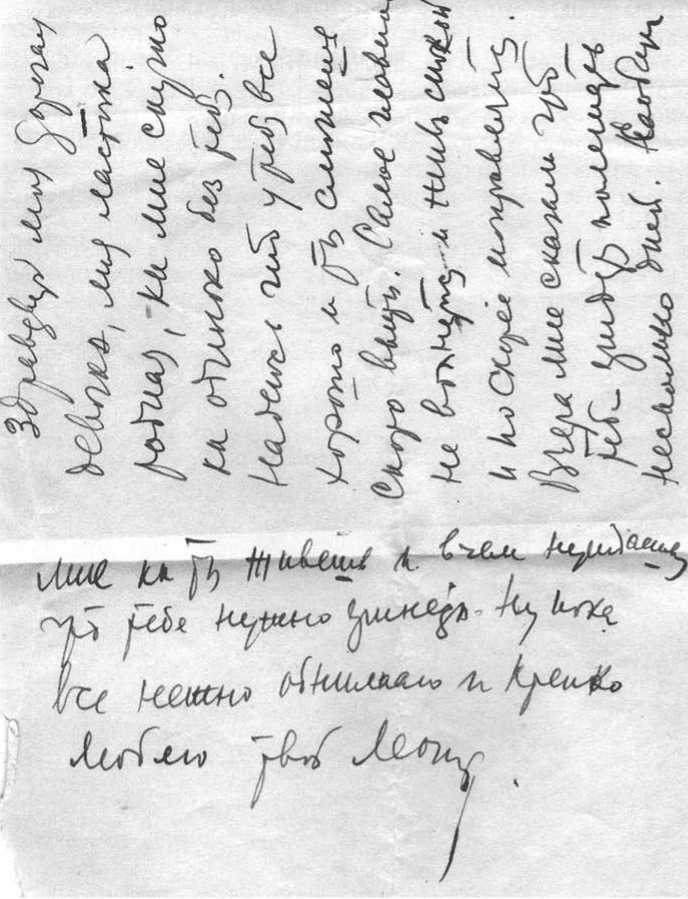 Здравствуй моя дорогая
девочка, моя ласточка
родная, ка мне скучно
ка одиноко без тебя.
Надеюсь что у тебя все
хорошо и ты сможешь
скоро выйти. Самое главное
не волнуйся и живи спокой
и поскорее поправляйся.
Вчера мне сказали что
тебе придётся полежать
несколько дней.
мне ка ты живешь и в чем нуждаешься
что тебе нужно принести. Ну пока
все нежно обнимаю и крепко
люблю твой